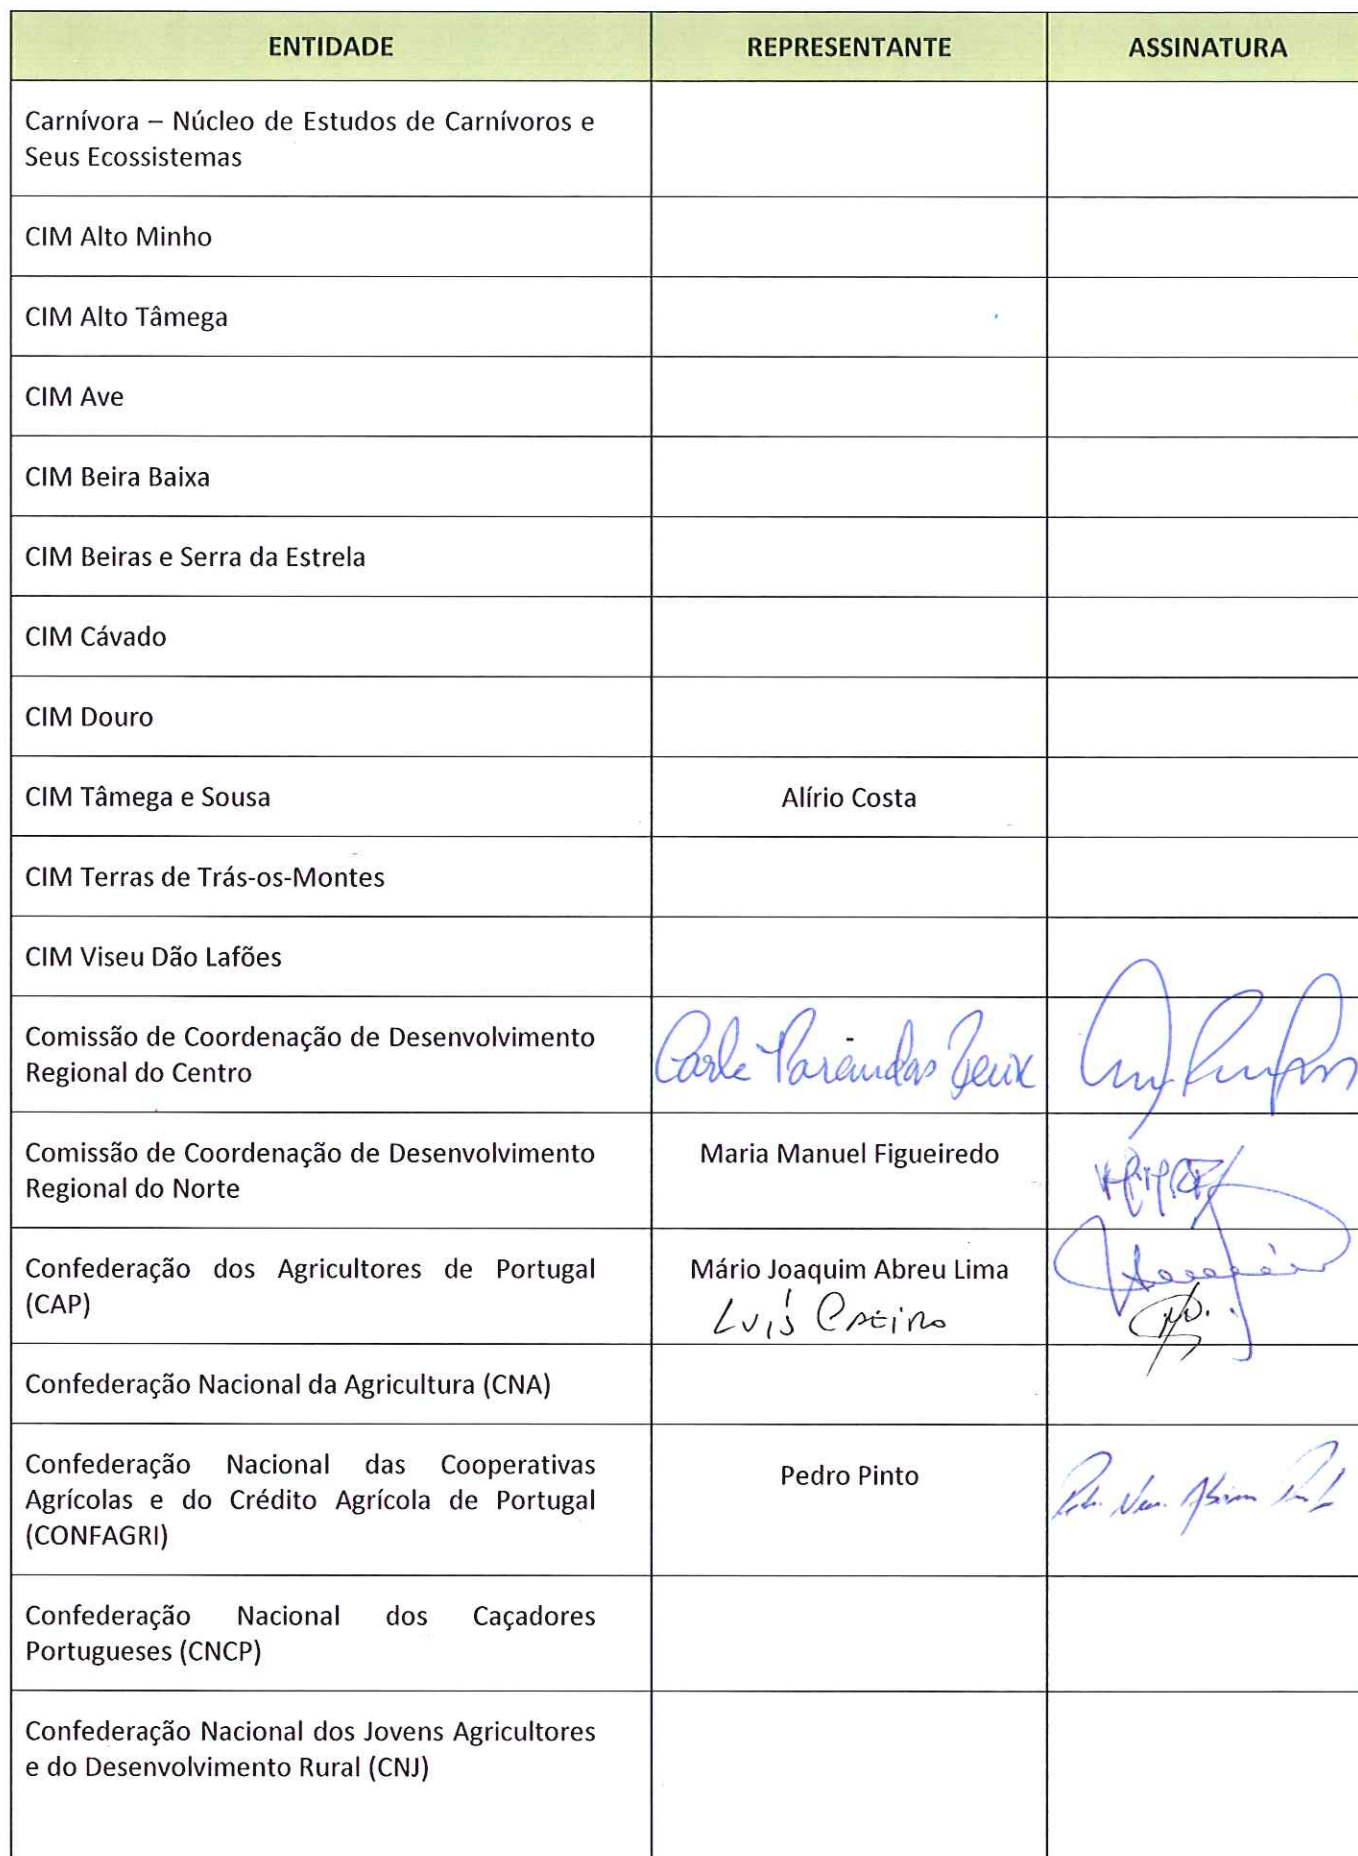 ENTIDADE REPRESENTANTE ASSINATURA
Carnívora – Núcleo de Estudos de Carnívoros e
Seus Ecossistemas
CIM Alto Minho
CIM Alto Tâmega
CIM Ave
CIM Beira Baixa
CIM Beiras e Serra da Estrela
CIM Cávado
CIM Douro
CIM Tâmega e Sousa Alírio Costa
CIM Terras de Trás-os-Montes
CIM Viseu Dão Lafões
Comissão de Coordenação de Desenvolvimento
Regional do Centro
Comissão de Coordenação de Desenvolvimento
Regional do Norte
Maria Manuel Figueiredo
Confederação dos Agricultores de Portugal
(CAP)
Mário Joaquim Abreu Lima
Luís
Confederação Nacional da Agricultura (CNA)
Confederação Nacional das Cooperativas
Agrícolas e do Crédito Agrícola de Portugal
(CONFAGRI)
Pedro Pinto
Confederação Nacional dos Caçadores
Portugueses (CNCP)
Confederação Nacional dos Jovens Agricultores
e do Desenvolvimento Rural (CNJ)